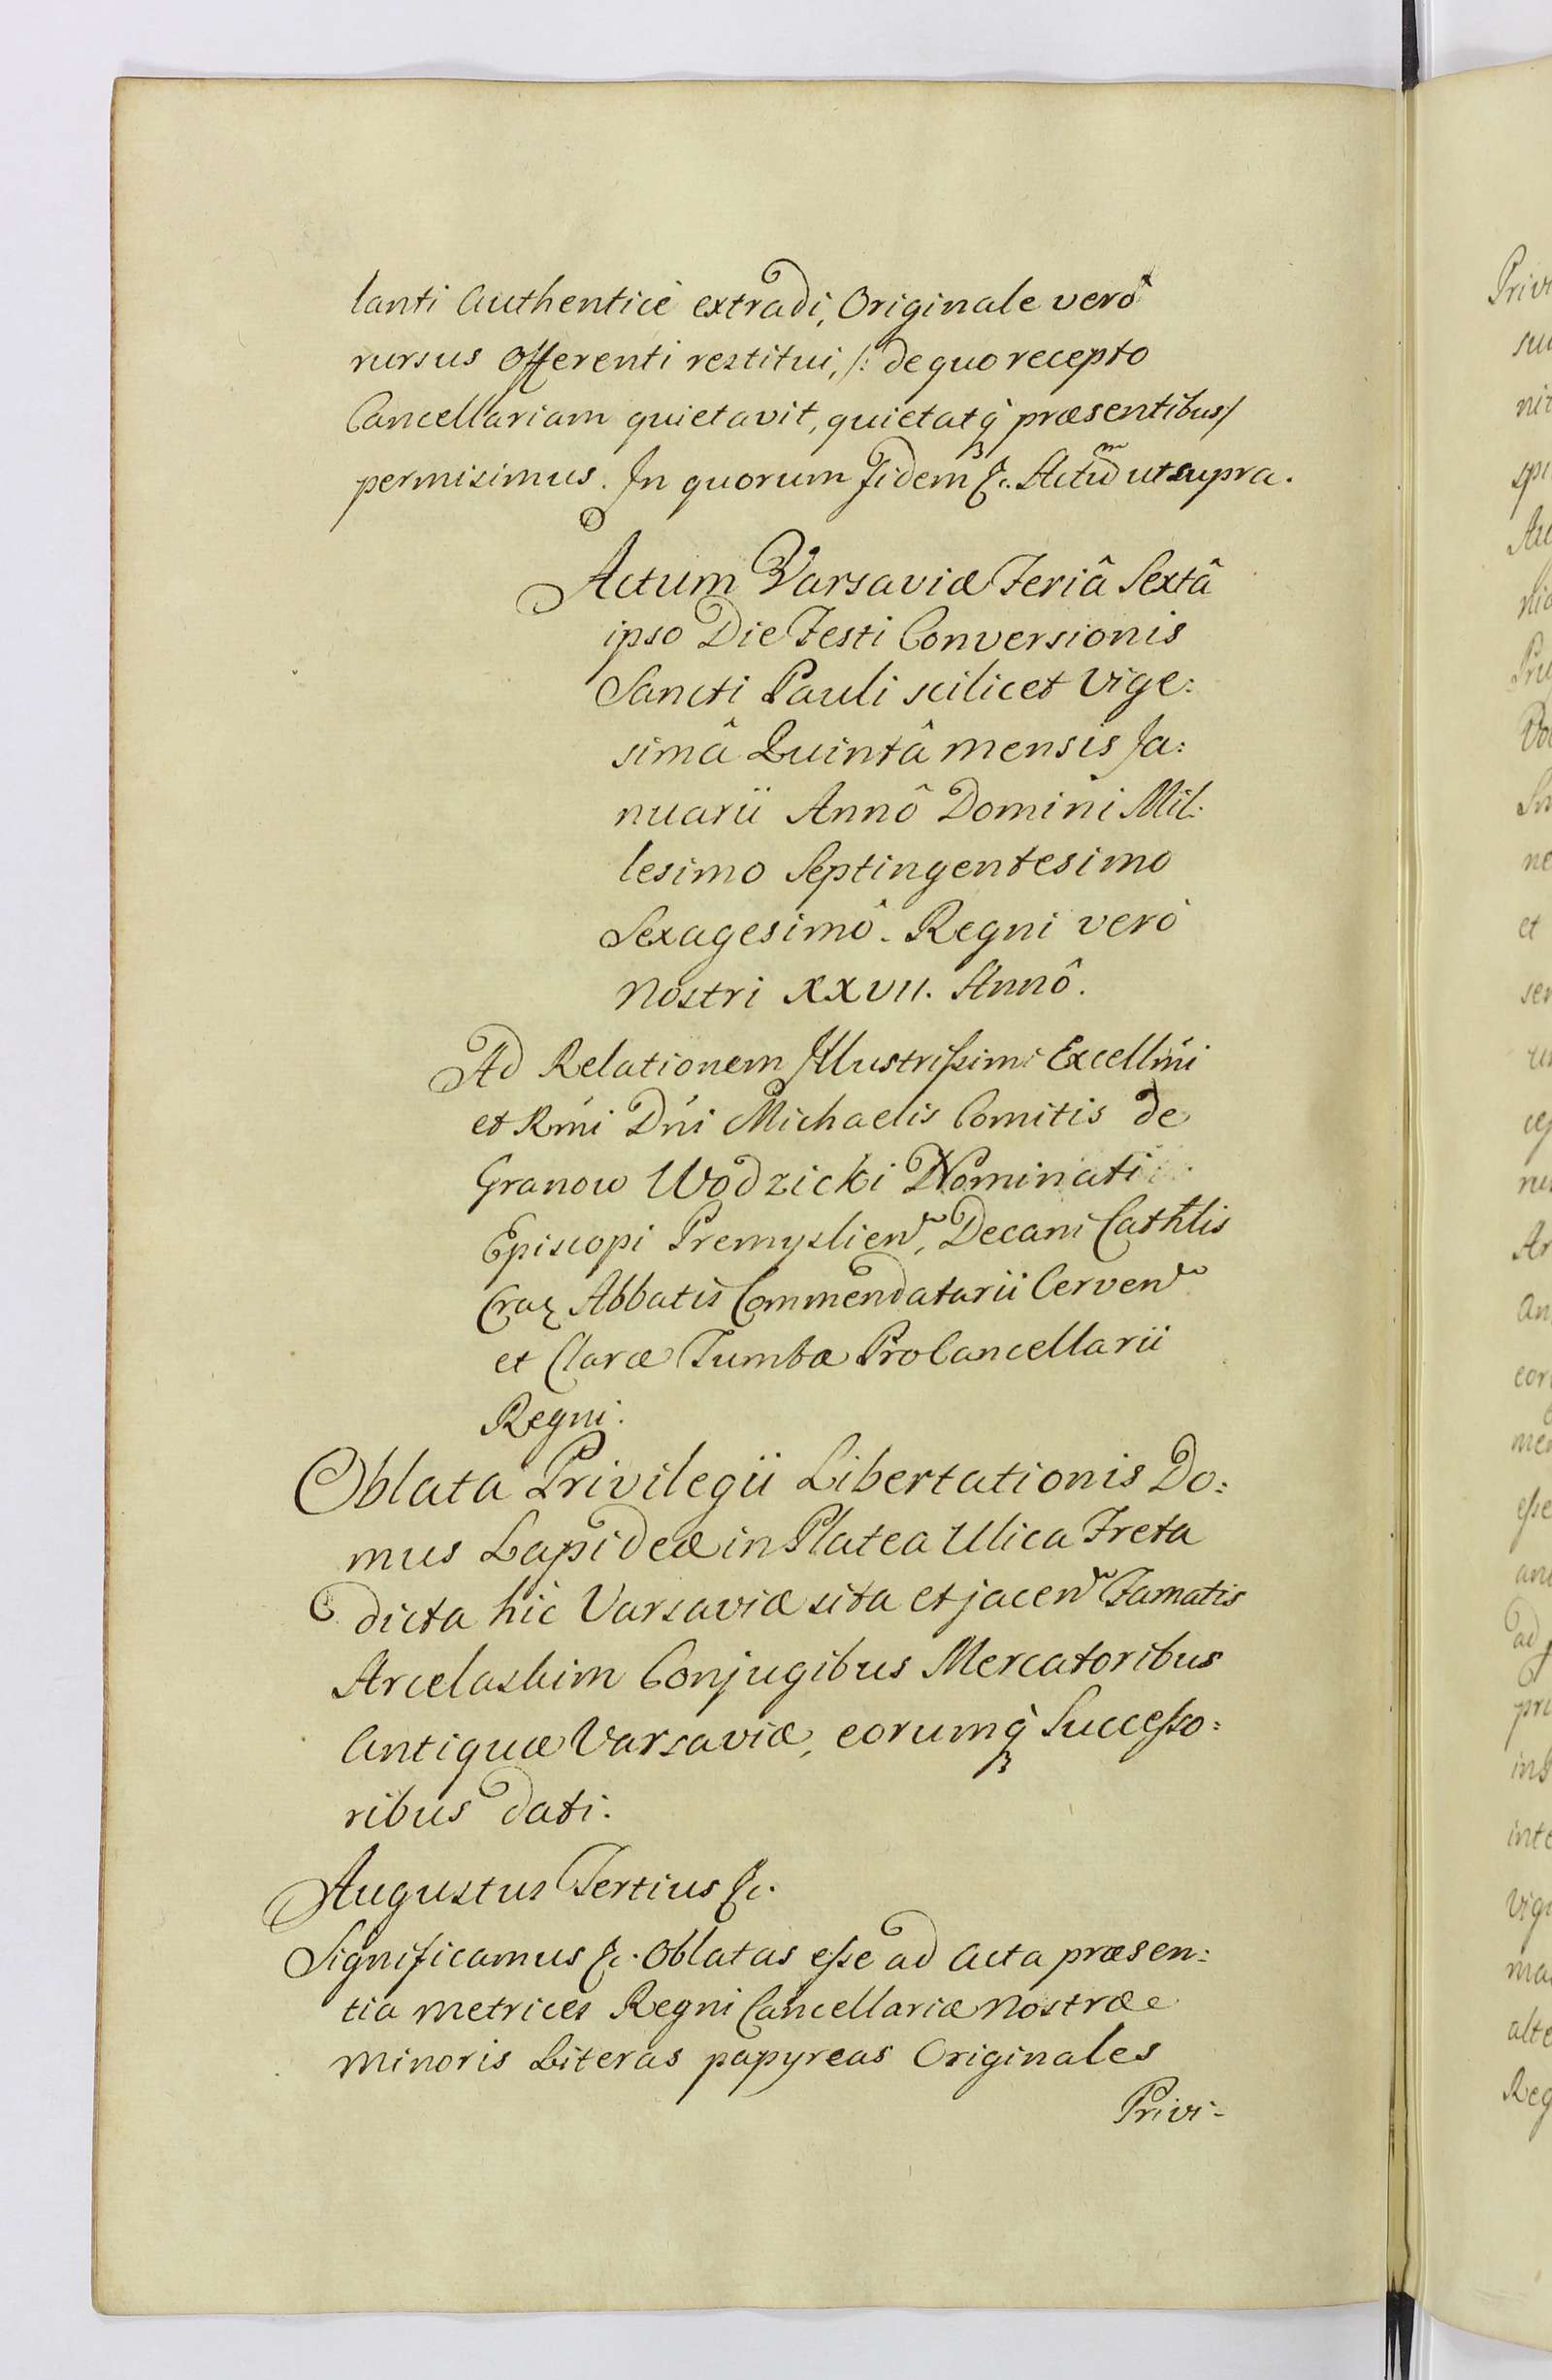 lanti Authenticè extradi, Originale verò
rursus Offerenti restitui, /: de quo recepto
Cancellariam quietavit, quietatq̀ præsentibus/
permisimus. In quorum Fidem &c. Actũm ut supra.
Actum Varsaviæ Feriâ Sextâ
ipso Die Festi Conversionis
Sancti Pauli scilicet Vige:
simâ Quintâ mensis Ja:
nuarii Annô Domini Mil:
lesimo Septingentesimo
Sexagesimô. Regni verò
Nostri XXVII. Annô.
Ad Relationem Illustrissimi Excellm̃i
et Rm̃i Dñi Michaelis Comitis de
Granow Wodzicki Nominati
Episcopi Premyslien, Decani Cathlis
Crac Abbatis Commendatarii Cerven
et Claræ Tumbæ ProCancellarii
Regni.
Oblata Privilegii Libertationis Do:
mus Lapideæ in Platea Ulica Freta
dicta hic Varsaviæ sita et jacen Famatis
Arcelaskim Conjugibus Mercatoribus
Antiquæ Varsaviæ, eorumq̀ Successo:
ribus dati.
Augustus Tertius &c.
Significamus &c. Oblatas esse ad Acta præsen:
tia Metrices Regni Cancellariæ Nostræ
Minoris Literas papyreas Originales
Privi-